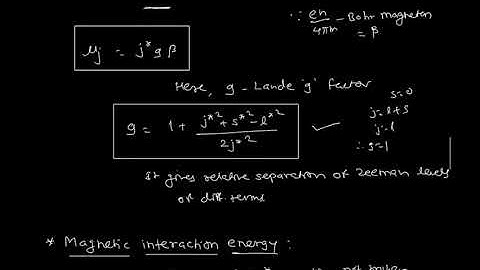 ∵ eh/4πm - Bohr magneton
= β
μj = j* g β
Here, g - Lande 'g' factor
s=0
j=l+s
j=l
∴ g=1
g = 1 + (j*² + s*² - l*²) / 2j*² ✓
It gives relative separation of zeeman levels
of diff. terms
* Magnetic interaction energy :